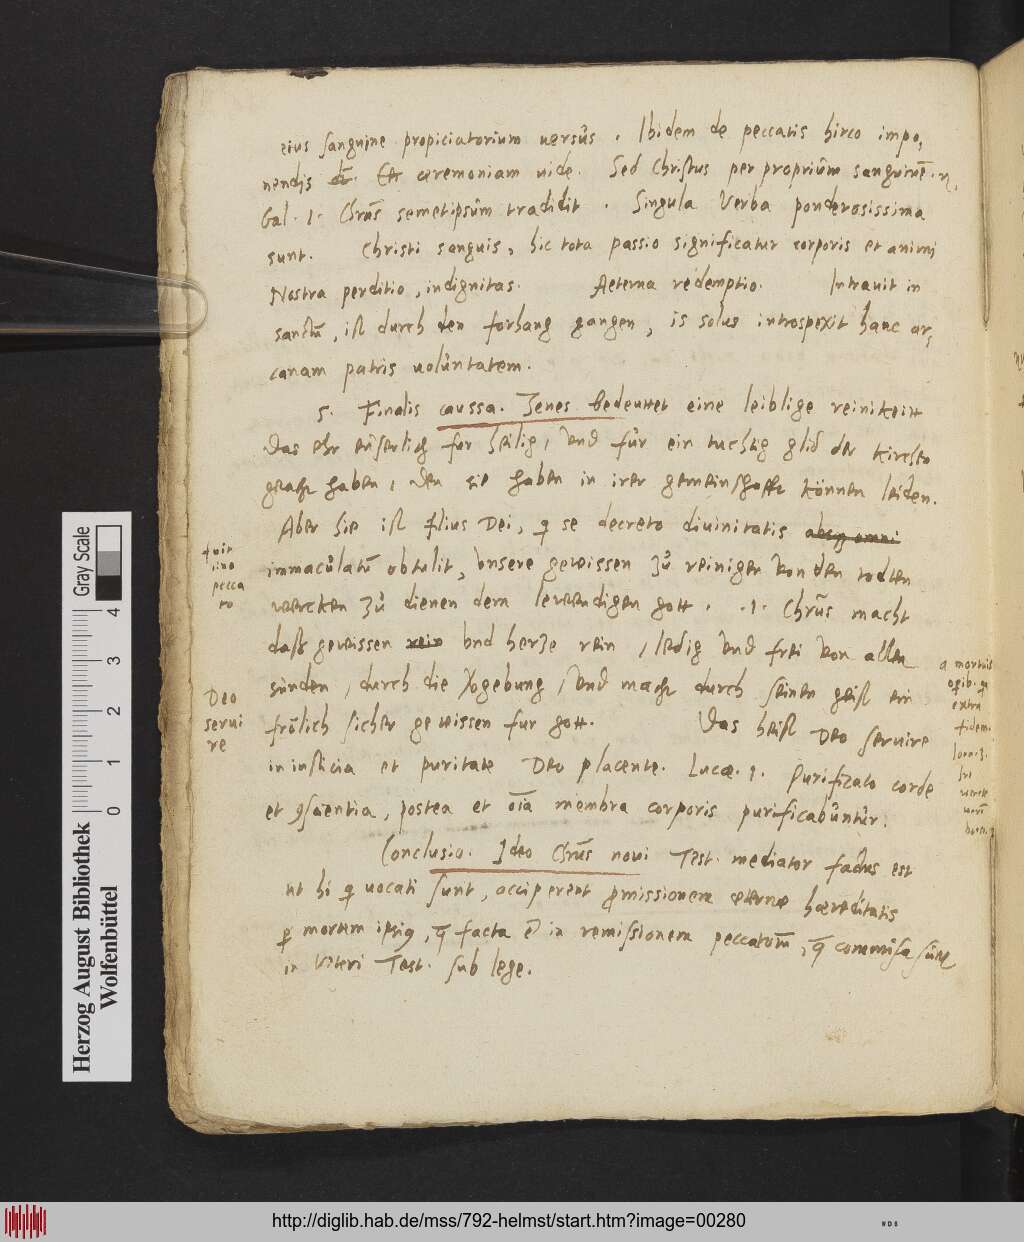 eius sanguine propiciatorium uersus. Ibidem de peccatis hirco impo,
nendis ceremoniam uide. Sed Christus per proprium sanguinē.
Gal. 1. Chrūs semetipsum tradidit. Singula Verba ponderosissima
sunt. Christi sanguis, hic tota passio significatur corporis et animi
Nostra perditio, indignitas. Aeterna redemptio. Intrauit in
sanctū, ist durch den forhang gangen, is solus introspexit hanc ar,
canam patris uoluntatem.
5. Finalis caussa. Jenes bedeuttet eine leiblige reinikeitt
Das ehr euserlich for heilig, vnd für ein tuchtig glid der kirchen
haben, den sie haben in irer gemeinschafft können leiden.
Aber hie ist filius Dei, q se decreto diuinitatis absq omni
fuit
sine
pecca
to
immaculatū obtulit, vnsere gewissen zů reinigen von den todten
wercken zů dienen dem lewendigen gott. .1. Chrūs macht
dass gewissen rein vnd herze rein, ledig vnd frei von allen
a mortuis
opib. q
extra
fidem.
sunden, durch die vgebung, vnd macht durch seinen geist ein
Deo
serui
re
frölich sicher gewissen fur gott. Das heist Deo seruire
in iusticia et puritate Deo placente. Lucæ. 1. Purificato corde
et gscientia, postea et oīa membra corporis purificabuntur.
Conclusio. Ideo Chrūs noui Test. mediator factus est
ut hi q uocati sunt, acciperent pmissionem æternæ hæreditatis
p mortem ipsius, q facta ē in remissionem peccatorū, q commissa sunt
in Veteri Test. sub lege.
Herzog August Bibliothek
Wolfenbüttel
0 1 2 3 4
Gray Scale
http://diglib.hab.de/mss/792-helmst/start.htm?image=00280